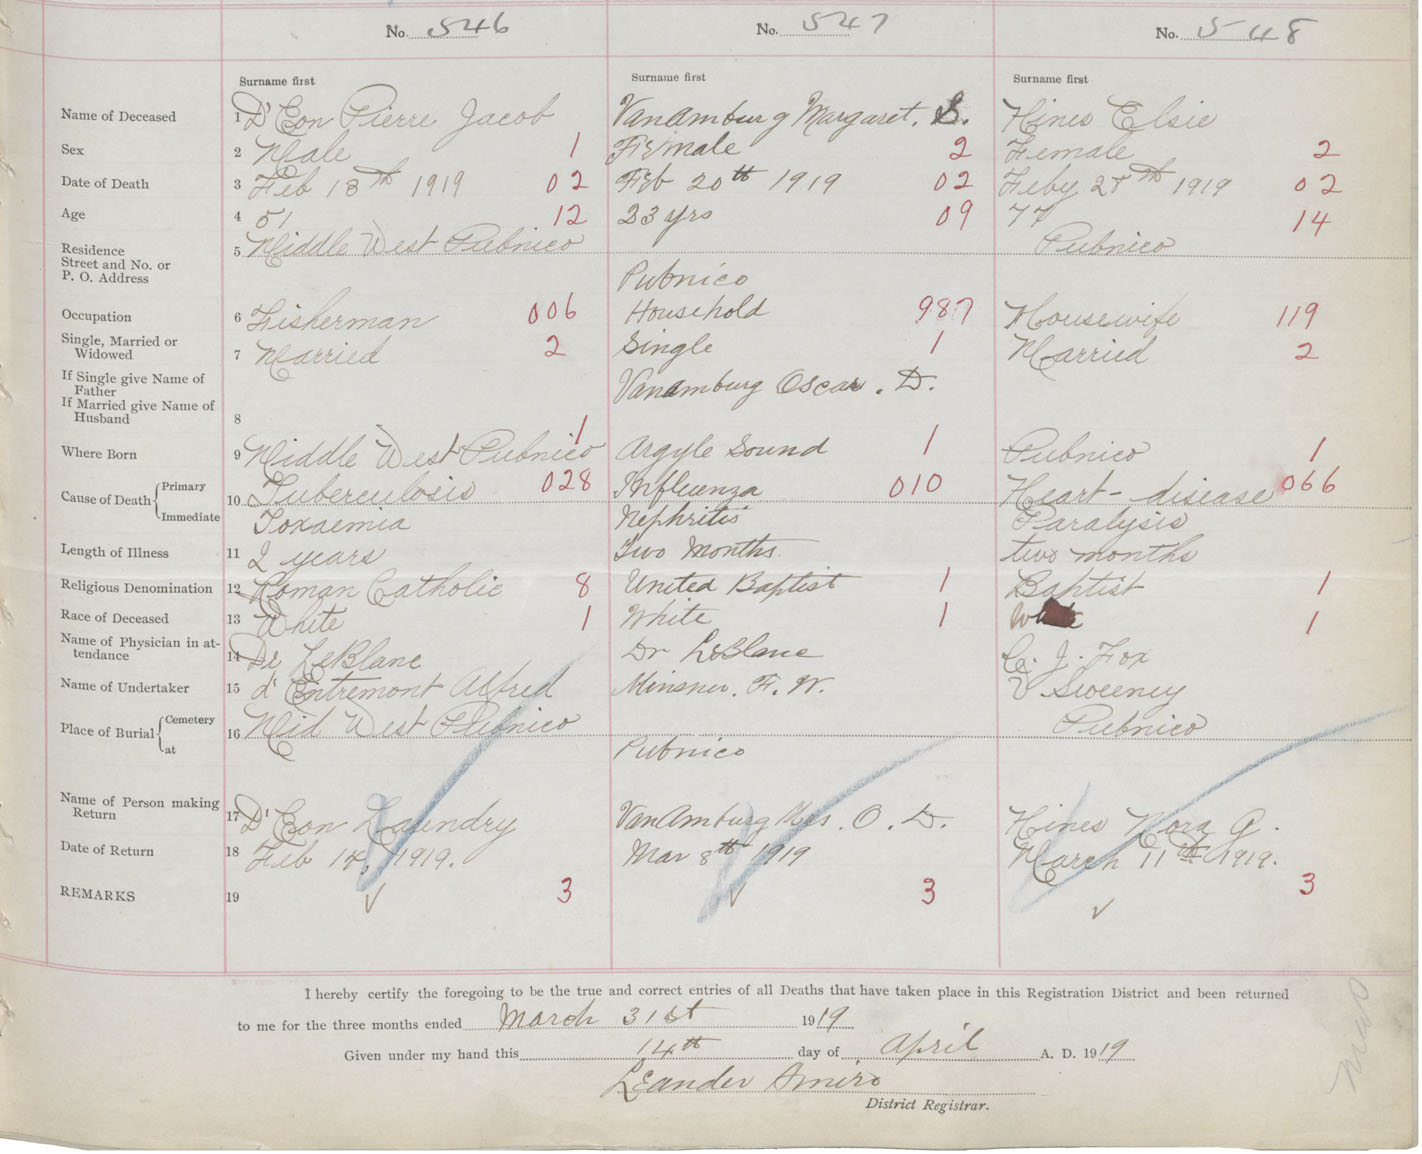 No. 546 No. 547 No. 548
Surname first Surname first Surname first
Name of Deceased 1 D'Eon Pierre Jacob VanAmburg Margaret. S. Hines Elsie
Sex 2 Male 1 Female 2 Female 2
Date of Death 3 Feb 18th 1919 02 Feb 20th 1919 02 Feby 28th 1919 02
Age 4 51 12 33 yrs 09 77 14
Residence
Street and No. or
P. O. Address
5 Middle West Pubnico Pubnico Pubnico
Occupation 6 Fisherman 006 Household 987 Housewife 119
Single, Married or
Widowed
7 Married 2 Single 1 Married 2
If Single give Name of
Father
If Married give Name of
Husband
8 VanAmburg Oscar. D.
Where Born 9 Middle West Pubnico 1 Argyle Sound 1 Pubnico 1
Cause of Death Primary 10 Tuberculosis 028 Influenza 010 Heart-disease 066
Immediate Toxaemia Nephritis Paralysis
Length of Illness 11 2 years Two Months. two months
Religious Denomination 12 Roman Catholic 8 United Baptist 1 Baptist 1
Race of Deceased 13 White 1 White 1 1
Name of Physician in at-
tendance
14 Dr LeBlanc Dr LeBlanc C. J. Fox
Name of Undertaker 15 d'Entremont Alfred F. W. V Sweeney
Place of Burial Cemetery
at
16 Mid West Pubnico Pubnico Pubnico
Name of Person making
Return
17 D'Eon Laundry VanAmburg Mrs. O. D. Hines Nora A.
Date of Return 18 Feb 14, 1919. Mar 8th 1919 March 11th 1919.
REMARKS 19 3 3 3
I hereby certify the foregoing to be the true and correct entries of all Deaths that have taken place in this Registration District and been returned
to me for the three months ended March 31st 1919
Given under my hand this 14th day of April A. D. 1919
Leander Amiro
District Registrar.